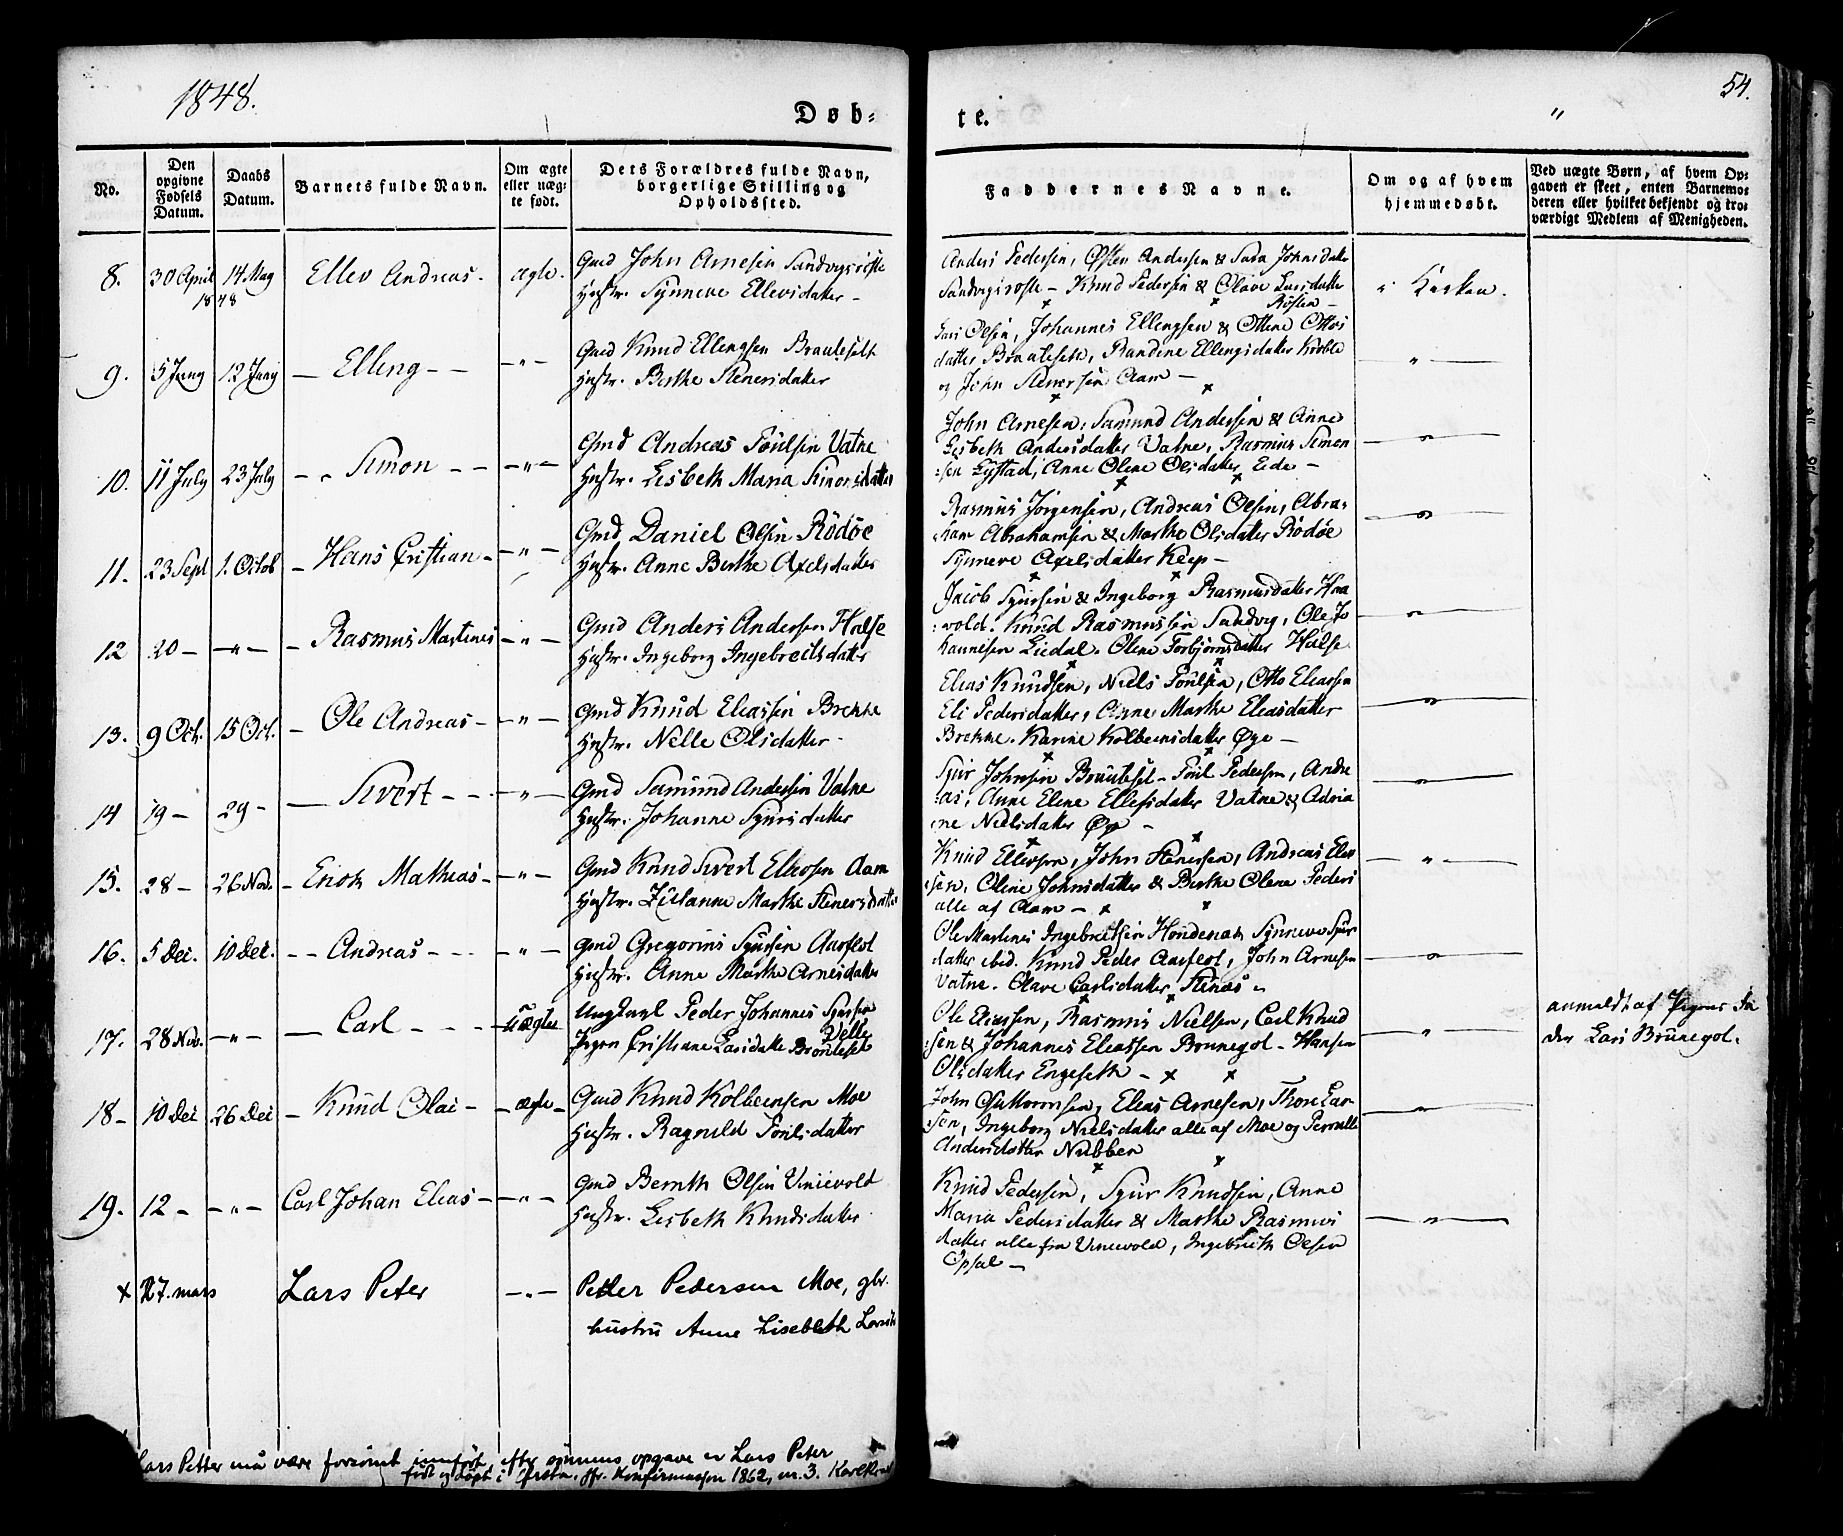 1848.
54.
Døb=
te.
"
No.
Den opgivne Fødsels Datum.
Daabs Datum.
Barnets fulde Navn.
Om ægte eller uæg= te født.
Dets Forældres fulde Navn, borgerlige Stilling og Opholdssted.
Faddernes Navne.
Om og af hvem hjemmedøbt.
Ved uægte Børn, af hvem Op= gaven er skeet, enten Barnemo= deren eller hvilket bekjendt og tro= værdigt Medlem af Menigheden.
8. 30 April 1848 14. May Ellev Andreas - ægte.
Gmd John Arnesen Sandvigsroste
Hustr. Synneve Ellevsdatter -
Anders Pedersen, Østen Andersen & Sara Johnsdatter
Sandvigsroste - Knud Pedersen & Olave Larsdatter
Rösten -
i Kirken.
9. 5 Juny 12 Juny - Elling - - - " -
Gmd Knud Ellengsen Brautesett
Hustr. Berthe Stenersdatter
Lars Olsen, Johannes Ellengsen & Oline Ottos
datter Brauteseth, Randine Ellengsdatter
og John Stenersen Aam -
- " -
10. 11 July 23 July - Simon - - - " -
Gmd Andreas Poulsen Vatne
Hustr. Lisbeth Maria Simonsdatter
John Arnesen, Samund Andersen & Anne
Lisbeth Andersdatter Vatne, Rasmus Simon
sen Systad, Anne Olene Olsdatter Eide -
- " -
11. 23 Sept 1. Octob - Hans Cristian - - " -
Gmd Daniel Olsen Rödöe
Hustr. Anne Berthe Axelsdatter
Rasmus Jörgensen, Andreas Olsen, Abra-
ham Abrahamsen & Marthe Olsdatter Rödöe
Synneve Axelsdatter Keep -
- " -
12 20 - - " - - Rasmus Martinus - " -
Gmd Anders Andersen Halse
Hustr. Ingeborg Ingebretsdatter
Jacob Sjursen & Ingeborg Rasmusdatter Haa
vold. Knud Rasmussen Sandvig, Ole Jo
hannesen Liedal. Olene Torbjörnsdatter Halse.
- " -
13. 9 Oct. 15 Oct. - Ole Andreas - - " -
Gmd Knud Eleassen Brekke
Hustr. Nelle Olsdatter -
Elias Knudsen, Niels Poulsen, Otto Eleassen
Eli Pedersdatter, Anne Marthe Eleasdatter
Brekke. Karine Kolbensdatter Øye -
- " -
14 19 - 29 - - Sivert - - - " -
Gmd Samund Andersen Vatne
Hustr. Johanne Sjursdatter
Sjur Johnsen Brauteset - Poul Pedersen, Andre
as, Anne Elene Ellefsdatter Vatne & Adria
ne Nielsdatter Øye -
- " -
15. 28 - 26 Nov. - Enok Mathias - - " -
Gmd Knud Sivert Ellevsen Aam
Hustr. Zilianne Marthe Stenersdatter
Knud Ellevsen, John Stenersen, Andreas Elev
sen, Oline Johnsdatter & Berthe Olena Peders
alle af Aam -
- " -
16. 5 Dec. 10 Dec. - - Andreas - - - - " -
Gmd Gregorius Sjursen Aarflot
Hustr. Anne Marthe Arnesdatter
Ole Martinus Ingebretsen Hondenak Synneve Sjur
datter ibid. Knud Peder Aarflot, John Arnesen
Vatne. Olave Carlsdatter Stenæs -
- " -
17. 28 Nov. - " - - Carl - - - uægte
Ungkarl Peder Johannes Sjursen Velle
Pigen Cristiane Larsdatter Brauteset
Ole Eleassen, Rasmus Nielsen, Carl Knud
sen & Johannes Eleassen Brunegot - Hansen
Olsdatter Engeseth -
- " -
anmeldt af Pigens Fa
der Lars Brunegot.
18 - 10 Dec 26 Dec - Knud Olai - - ægte -
Gmd Knud Kolbeensen Moe
Hustr. Ragnild Poulsdatter
John Guttormsen, Elias Arnesen, Thore Lar-
sen, Ingeborg Nielsdatter alle af Moe og Pernille
Andersdatter Nubben
- " -
19. 12 - - " - Carl Johan Eleas - - " -
Gmd Bernth Olsen Vinievold
Hustr. Lisbeth Knudsdatter
Knud Pedersen, Sjur Knudsen, Anne
Maria Pedersdatter & Marthe Rasmus
datter alle fra Vinievold, Ingebreth Olsen
Opsal -
- " -
x 27. mars Lars Peter - " -
Petter Pedersen Moe, gbr.
hustru Anne Lisebeth Larsd
Lars Petter må være forsömt innfört, efter sönnens opgave er Lars Peter
födt og döpt i Örsta, jfr. Konfirmasjon 1862, nr. 3.